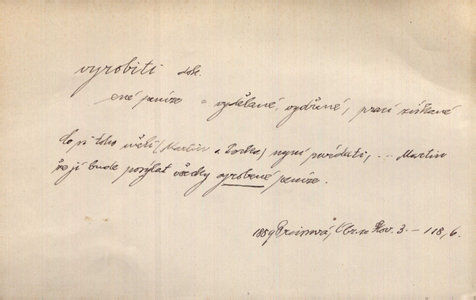 vyrobiti dok.
ené peníze = vydělané, vydřené, prací získané
co si toho měli (Martin a Dorka) nyní povídati, ... Martin
že jí bude posylat všecky vyrobené peníze.
1889 Preissová, Obr. ze Slov. 3. – 118, 6.